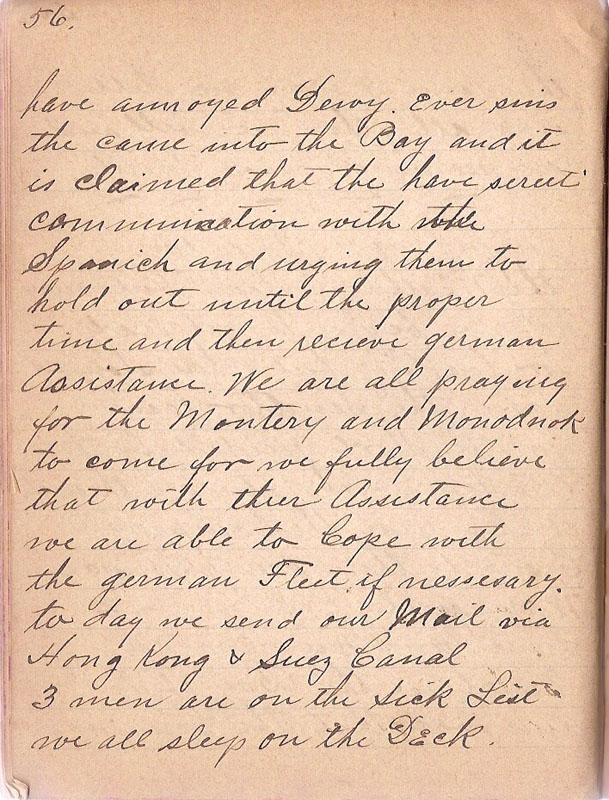 56.
have annoyed Dewy. Ever sins
the came into the Bay and it
is claimed that the have sercet
communication with the
Spanich and urging them to
hold out until the proper
time and then recieve german
Assistance. We are all praying
for the Montery and Monodnok
to come for we fully believe
that with their Assistance
we are able to Cope with
the german Fleet if nessesary.
to day we send our Mail via
Hong Kong & Suez Canal
3 men are on the Sick List
we all sleep on the Deck.